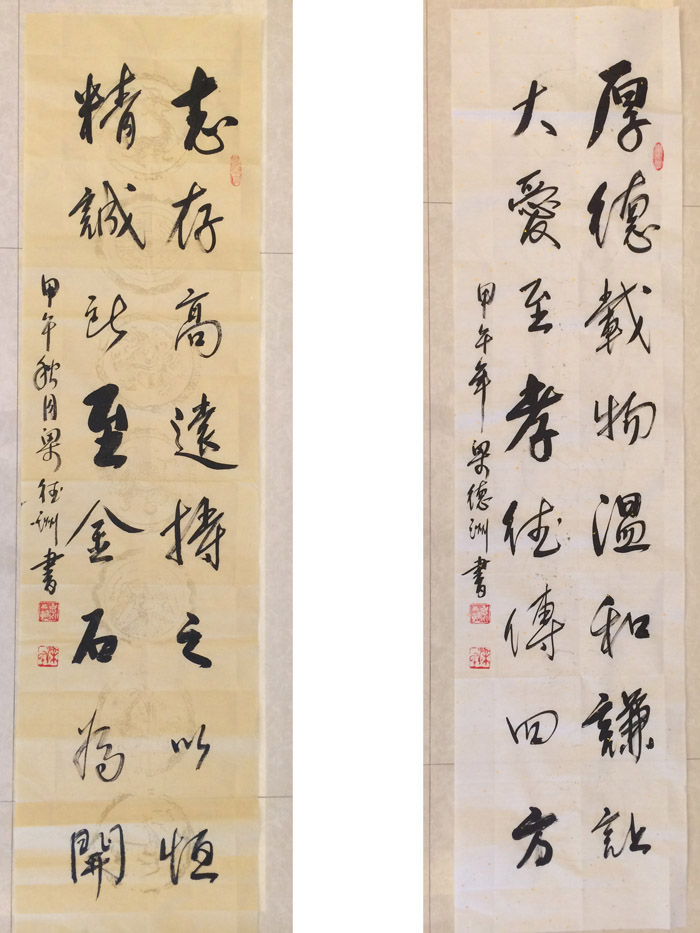 志存高遠持之以恒
精誠所至金石為開
甲午秋月梁德洲書
厚德載物温和謙讓
大愛至孝德傳四方
甲午年梁德洲書